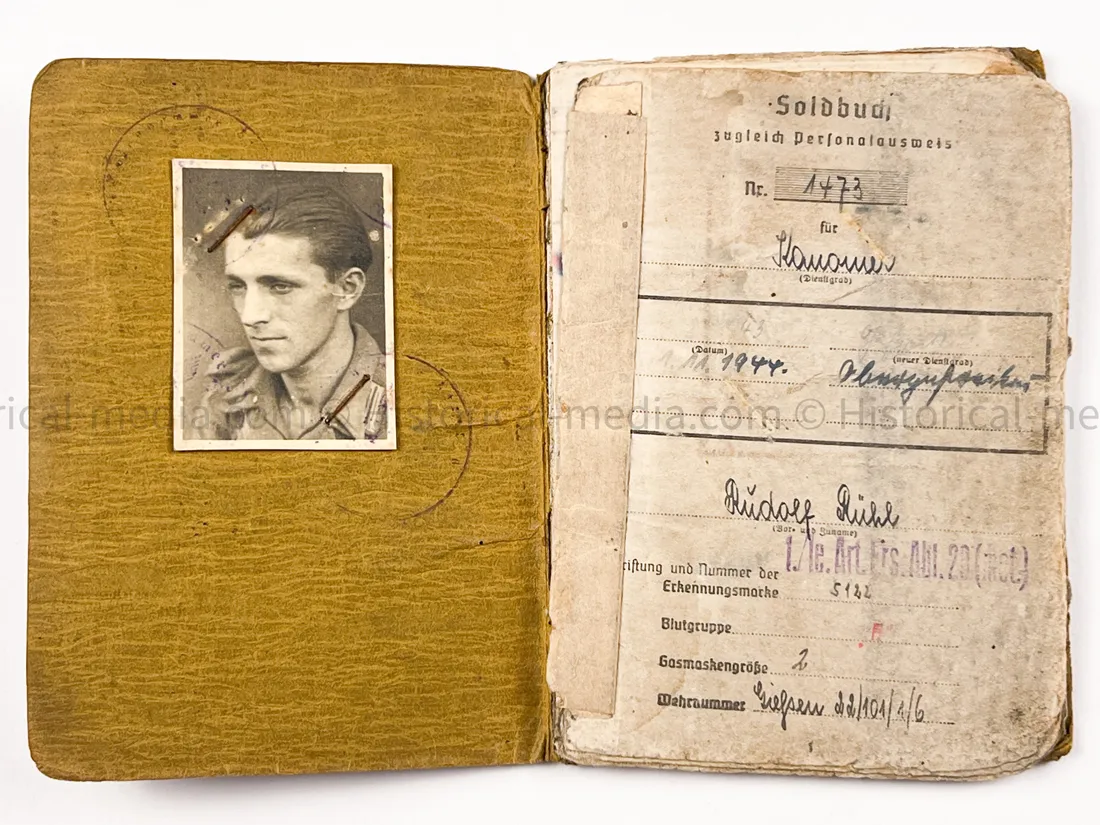 Soldbuch
zugleich Personalausweis
Nr. 1473
für
Kanonier
(Dienstgrad)
(Datum) (neuer Dienstgrad)
1.11.1944. Obergefreiter
historical-media.com © Historical-media.com © Historical-me
Rudolf Rühl
(Vor- und Zuname)
1./le. Art. Ers. Abt. 29 (mot)
riftung und Nummer der
Erkennungsmarke 5122
Blutgruppe
Gasmaskengröße 2
Wehrnummer Gießen 22/101/1/6